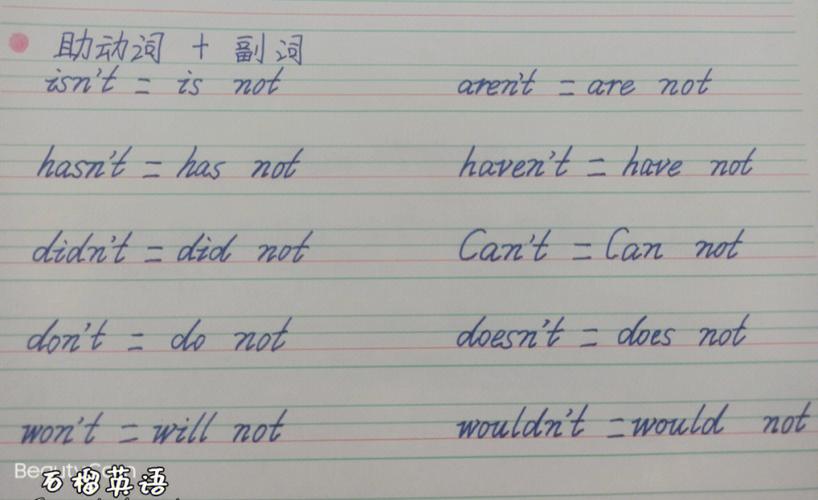 助动词 + 副词
isn't = is not aren't = are not
hasn't = has not haven't = have not
didn't = did not Can't = Can not
don't = do not doesn't = does not
won't = will not wouldn't = would not
石榴英语